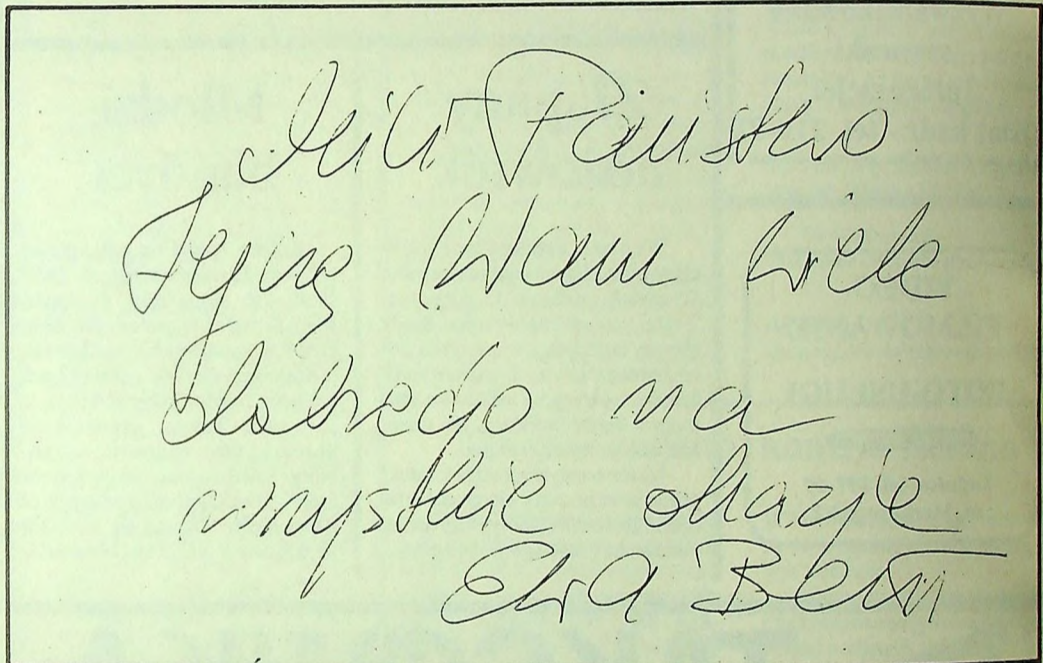 Mili Państwo
Życzę Wam wiele
dobrego na
wszystkie okazje
Ewa Bem